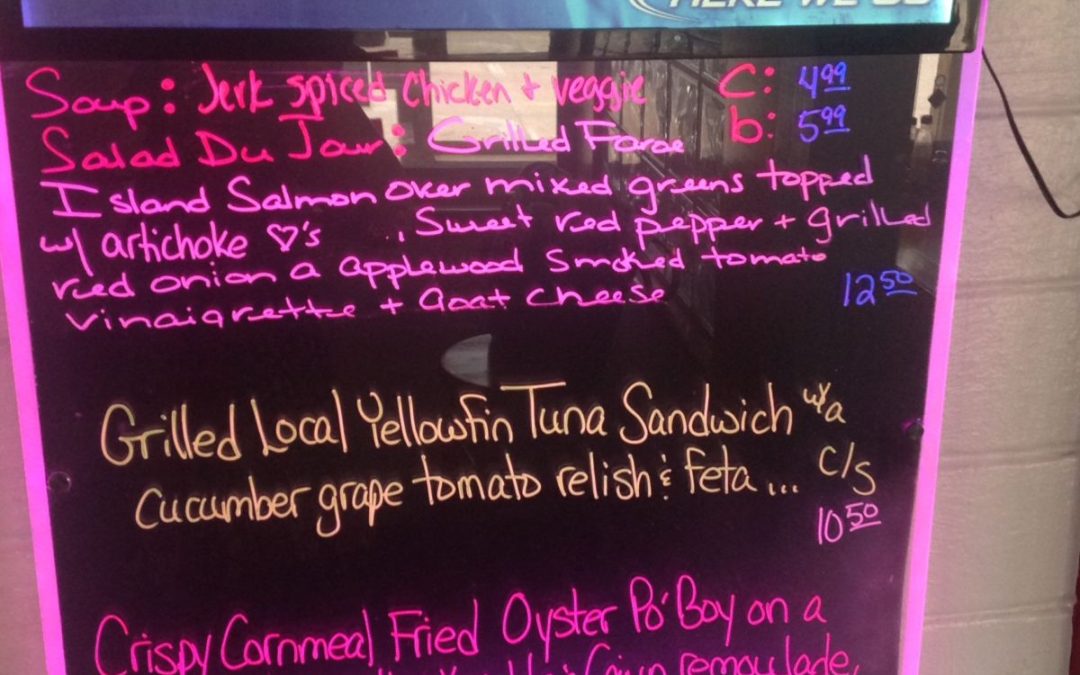 HERE WE GO
Soup: Jerk spiced chicken + veggie C: 4.99
Salad Du Jour: Grilled Faroe b: 5.99
Island Salmon over mixed greens topped
w/ artichoke ♡'s , Sweet red pepper + grilled
red onion a applewood smoked tomato
vinaigrette + Goat cheese 12.50
Grilled Local Yellowfin Tuna Sandwich w/a
cucumber grape tomato relish & feta... C/S
10.50
Crispy Cornmeal Fried Oyster Po' Boy on a
Cajun remoulade,